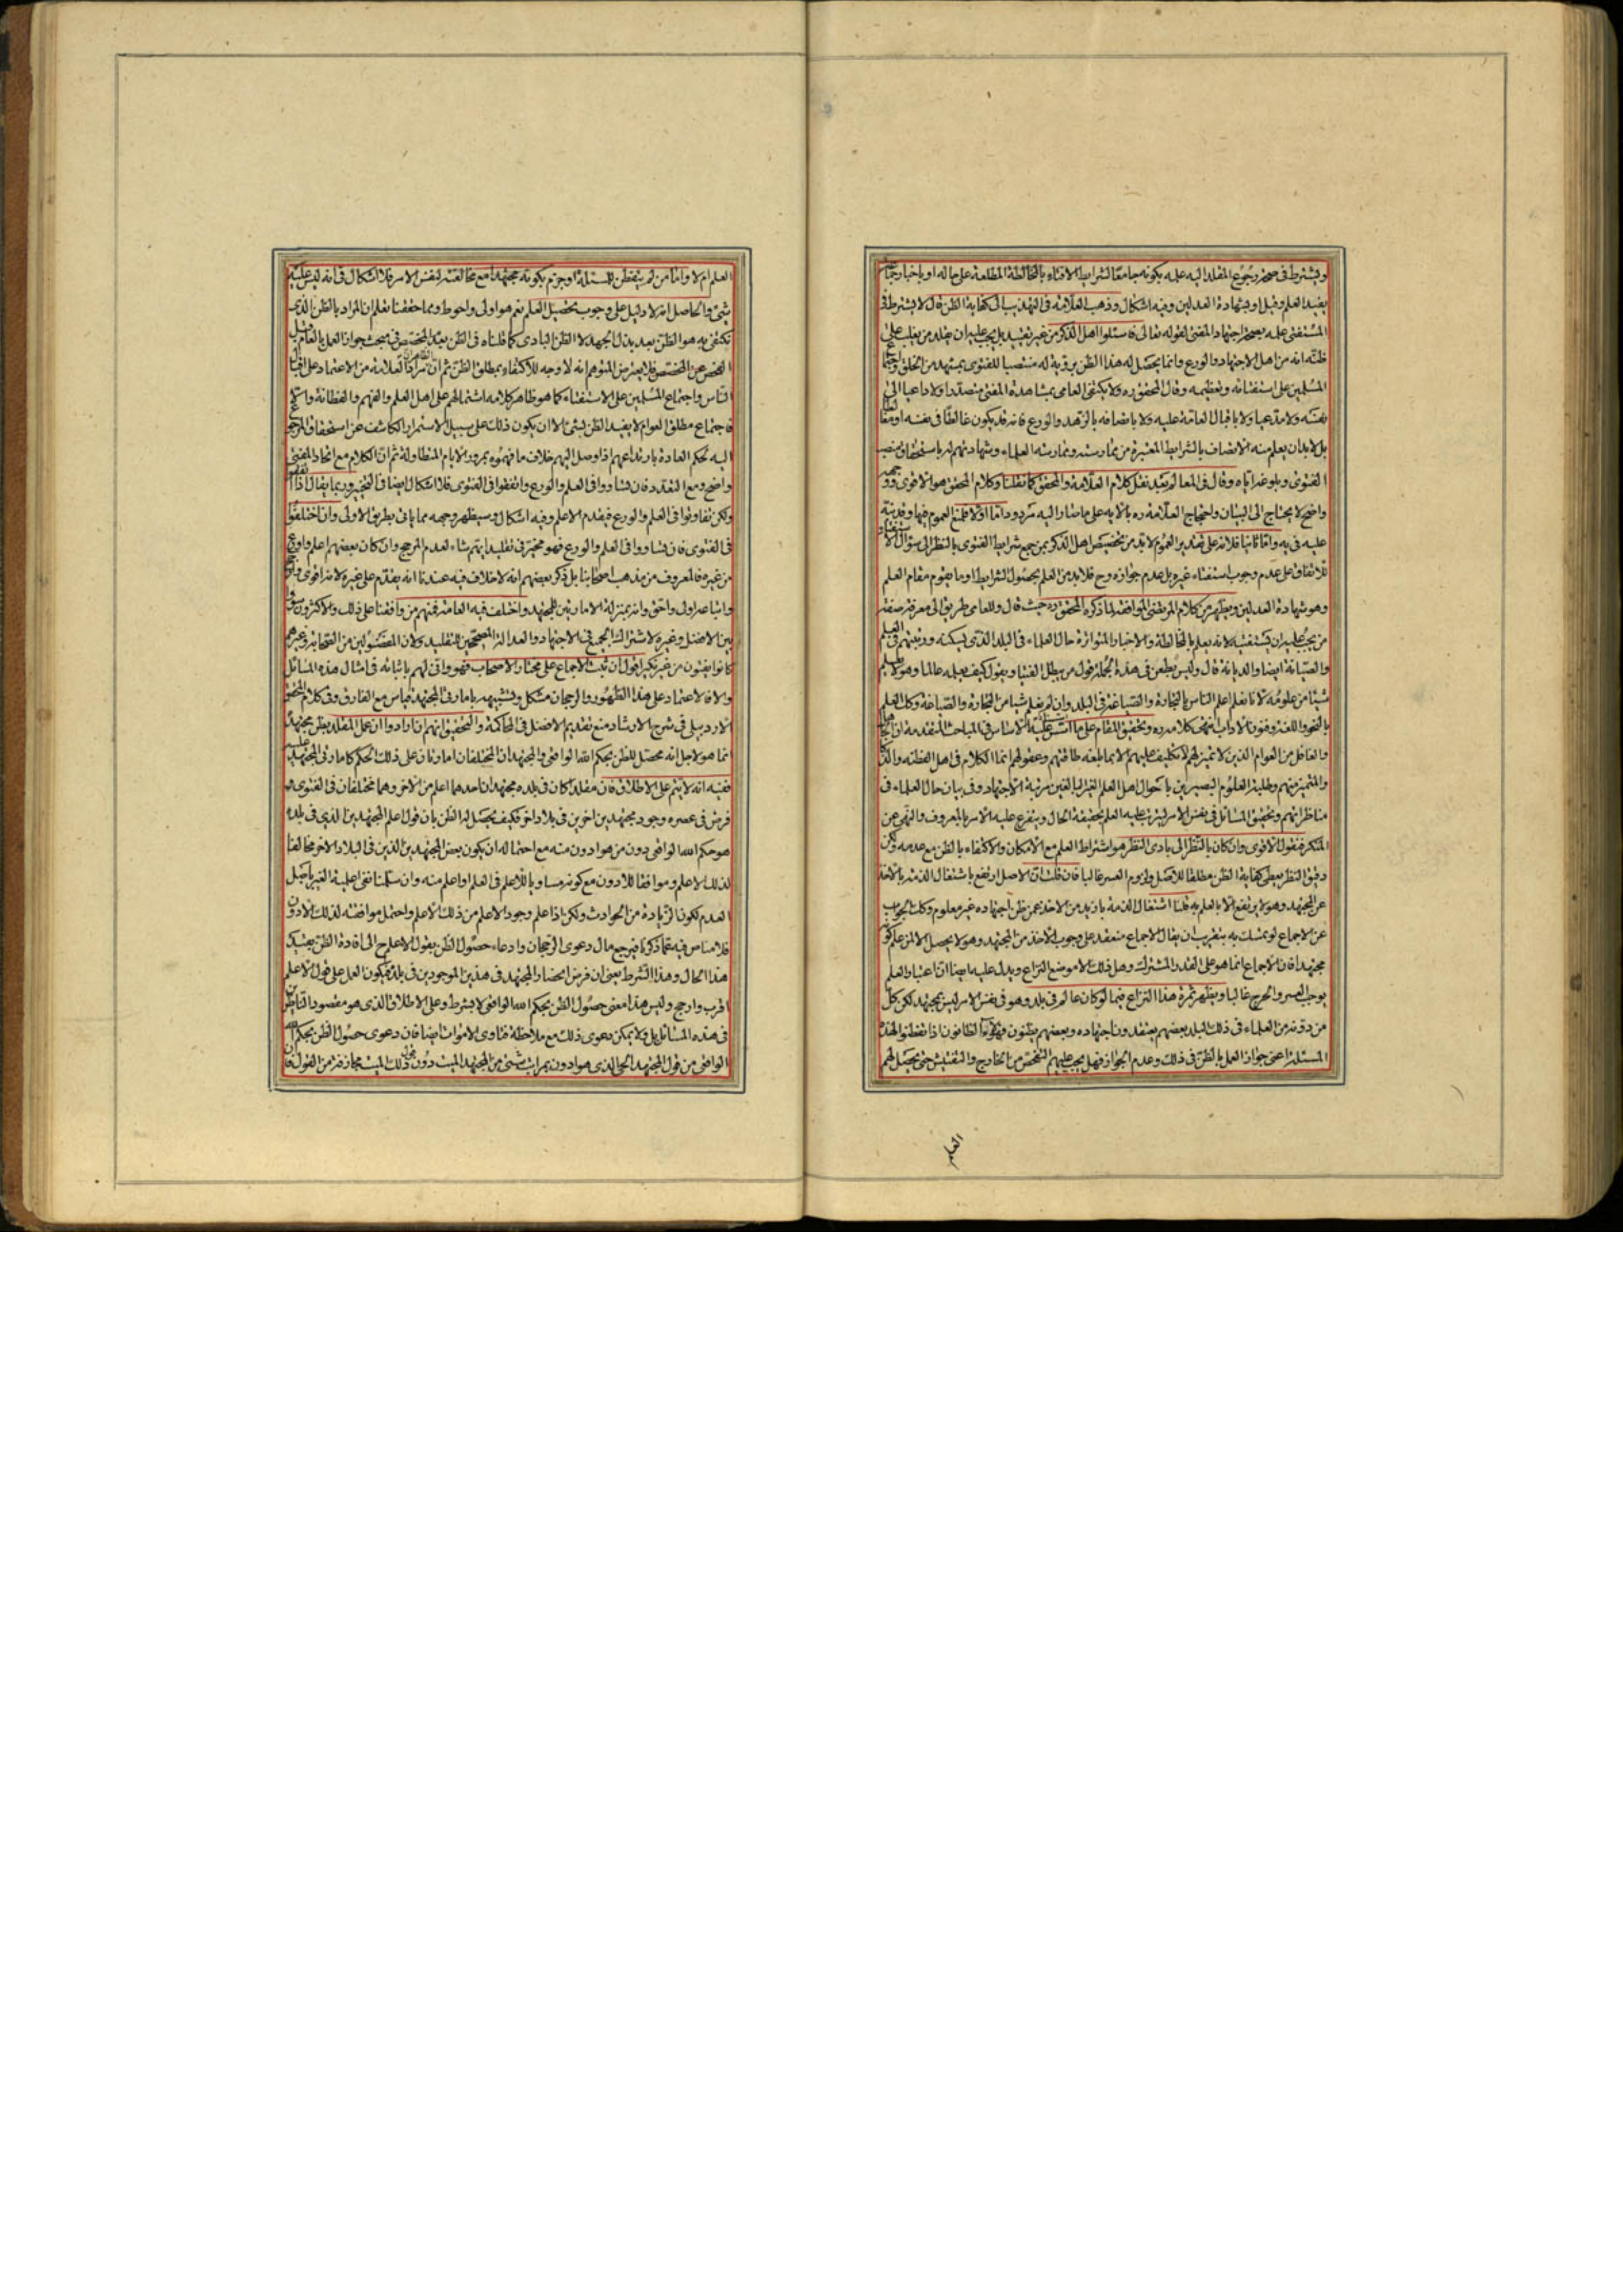 ويشترط في صحة رجوع المقلد اليه علمه بكونه جامعا لشرايط الافتاء بالمخالطة المطلعة على حاله او باخبار جماعة
يفيد العلم وقيل او بشهادة العدلين وفيه اشكال وذهب العلامة في التهذيب الى كفاية الظن قال لا يشترط في
المستفتى علمه بصحة اجتهاد المفتى لقوله تعالى فاسئلوا اهل الذكر من غير تقييد بل يجب عليه ان يقلد من يغلب على
ظنه انه من اهل الاجتهاد والورع وانما يحصل له هذا الظن برؤيته له منتصبا للفتوى بمشهد من الخلق واجتماع
المسلمين على استفتائه وتعظيمه وقال المحقق ره ولا يكتفى العامى بمشاهدة المفتى متصدرا ولا داعيا الى
نفسه ولا مدعيا ولا باقبال العامة عليه ولا باتصافه بالزهد والورع فانه قد يكون غالطا في نفسه او مغالطا
بل لا بد ان يعلم منه الاتصاف بالشرايط المعتبرة من ممارسته وممارسة العلماء وشهادتهم له باستحقاق منصب
الفتوى وبلوغه اياه وقال في المعالم بعد نقل كلام العلامة والمحقق كما نقلنا وكلام المحقق هو الاقوى ووجهه
واضح لا يحتاج الى البيان واحتجاج العلامة ره بالاية على ما صار اليه مردود اما اولا فلمنع العموم فيها وقد نبه
عليه في يه واما ثانيا فلانه على تقدير العموم لا بد من تخصيص اهل الذكر بمن جمع شرايط الفتوى بالنظر الى سؤال الاستفتاء
للاتفاق على عدم وجوب استفتاء غيره بل عدم جوازه وح فلا بد من العلم بحصول الشرايط او ما يقوم مقام العلم
وهو شهادة العدلين ويظهر من كلام المرتضى الموافقة لما ذكره المحقق ره حيث قال وللعامى طريق الى معرفة صفة
من يجب عليه ان يستفتيه لانه يعلم بالمخالطة والاخبار المتواترة حال العلماء في البلد الذى يسكنه ورتبتهم في العلم
والصيانة ايضا والديانة قال وليس يطعن في هذه الجملة قول من يبطل الفتيا ويقول كيف يعلمه عالما وهو لا يعلم
شيئا من علومه لانا نعلم اعلم الناس بالتجارة والصناعة في البلد وان لم نعلم شيئا من التجارة والصناعة وكك العلم
بالنحو واللغة وفنون الاداب انتهى كلامه ره وتحقيق المقام على ما
والغافل من العوام الذين لا تميز لهم لا تكليف عليهم الا بما بلغه طاقتهم وعقولهم انما الكلام في اهل الفطنة والذكاء
والتميز منهم وطلبة العلوم البصيرين باحوال اهل العلم الغير البالغين مرتبة الاجتهاد وفي بيان حال العلماء في
مناظراتهم وتحقيق المسائل في نفس الامر ليترتب عليه العلم بحقيقة الحال ويتفرع عليه الامر بالمعروف والنهى عن
المنكر فنقول الاقوى وان كان بالنظر الى بادى النظر هو اشتراط العلم مع الامكان والاكتفاء بالظن مع عدمه ولكن
دقيق النظر يعطى كفاية الظن مطلقا للاصل ولزوم العسر غالبا فان قلت ان الاصل ارتفع باشتغال الذمة بالاخذ
عن المجتهد وهو لا يرتفع الا بالعلم به قلنا اشتغال الذمة بازيد من الاخذ عمن ظن اجتهاده غير معلوم وكك الجواب
عن الاجماع لو تمسك به بتقريب ان يقال الاجماع منعقد على وجوب الاخذ من المجتهد وهو لا يحصل الا لمن علم كونه
مجتهدا فان الاجماع انما هو على القدر المشترك وهل ذلك الا موضع النزاع ويدل عليه ايضا ان اعتبار العلم
يوجب العسر والحرج غالبا ويظهر ثمرة هذا النزاع فيما لو كان عالم في بلد وهو في نفس الامر ليس بمجتهد لكن كل
من دونه من العلماء في ذلك البلد بعضهم يعتقدون اجتهاده وبعضهم يظنون فهؤلاء الظانون اذا تفطنوا لهذه
المسئلة اعنى جواز العمل بالظن في ذلك وعدم الجواز فهل يجب عليهم التفحص من الخارج والتفتيش حتى يحصل لهم
العلم
العلم ام لا واما من لم يتفطن للمسئلة او جزم بكونه مجتهدا مع مخالفته لنفس الامر فلا اشكال في انه ليس عليه
شئ والحاصل انه لا دليل على وجوب تحصيل العلم نعم هو اولى واحوط ومما حققنا يعلم ان المراد بالظن الذى
نكتفى به هو الظن بعد بذل الجهد لا الظن البادى كما قلناه في الظن بعدم المخصص في مبحث جواز العمل بالعام قبل
الفحص عن المخصص فلا يعترض المتوهم انه لا وجه للاكتفاء بمطلق الظن ثم ان الظاهر ان مراد العلامة من الاعتماد على اقبال
الناس واجتماع المسلمين على الاستفتاء كما هو ظاهر كلامه اشتمالهم على اهل العلم والفهم والفطانة والا
فاجتماع مطلق العوام لا يفيد الظن بشئ الا ان يكون ذلك على سبيل الاستمرار الكاشف عن استحقاق المرجع
اليه بحكم العادة بارتداعهم اذا وصل اليهم خلاف ما فهموه بمرور الايام المتطاولة ثم ان الكلام مع اتحاد المفتى
واضح ومع التعدد فان تساووا في العلم والورع واتفقوا في الفتوى فلا اشكال ايضا في التخيير وربما يقال اذا اتفقوا
ولكن تفاوتوا في العلم والورع فيقدم الاعلم وفيه اشكال وسيظهر وجهه مما ياتى بطريق الاولى وان اختلفوا
في الفتوى فان تساووا في العلم والورع فهو مخير في تقليد ايهم شاء لعدم المرجح وان كان بعضهم اعلم واورع
من غيره فالمعروف من مذهب اصحابنا بل ذكر بعضهم انه لا خلاف فيه عندنا انه يقدم على غيره لانه اقوى وارجح
واتباعه اولى واحق وانه بمنزلة الامارتين للمجتهد واختلف فيه العامة فمنهم من وافقنا على ذلك والاكثرون سووا
بين الافضل وغيره لاشتراك الجميع في الاجتهاد والعدالة المصححين للتقليد ولان المفضولين من الصحابة وغيرهم
كانوا يفتون من غير نكير اقول ان ثبت الاجماع على مختار الاصحاب فهو وانى لهم باثباته في امثال هذه المسائل
والا فالاعتماد على هذا الظهور والرجحان مشكل وتشبيهه بامارة المجتهد قياس مع الفارق وفي كلام المحقق
الاردبيلى في شرح الارشاد منع تقديم الافضل في الحاكمة والتحقيق انهم ان ارادوا ان عمل المقلد بظن مجتهده
انما هو لاجل انه محصل للظن بحكم الله الواقعى والمجتهدان المختلفان امارتان على ذلك الحكم كامارتى المجتهد عليه
ففيه انه لا يتم على الاطلاق فان مقلدا كان في بلده مجتهدان احدهما اعلم من الاخر وهما مختلفان في الفتوى و
فرض في عصره وجود مجتهدين اخرين في بلاد اخر فكيف يحصل له الظن بان قول اعلم المجتهدين الذى في بلده
هو حكم الله الواقعى دون من هو ادون منه مع احتمال ان يكون بعض المجتهدين الذين في البلاد الاخر مخالفا
لذلك الاعلم وموافقا للادون مع كونه مساويا للاعلم في العلم او اعلم منه وان سلمنا نفى اعلمية الغير باصل
العدم لكون الزيادة من الحوادث ولكن اذا علم وجود الاعلم من ذلك الاعلم واحتمل موافقته لذلك الادون
فلا مناص فيه عما ذكرنا فيرجع مال دعوى الرجحان وادعاء حصول الظن بقول الاعلم ح الى افادة الظن بعد
هذا الحال وهذا الشرط يعنى ان فرض انحصار المجتهد في هذين الموجودين في بلده فيكون العمل على قول الاعلم
اقرب وارجح وليس هذا معنى حصول الظن بحكم الله الواقعى لا بشرط وعلى الاطلاق الذى هو مقصود الناظرين
في هذه المسائل بل ولا يمكن دعوى ذلك مع ملاحظة فتاوى الاموات ايضا فان دعوى حصول الظن بحكم الله
الواقعى من قول المجتهد الحى الذى هو ادون بمراتب شتى من المجتهد الميت دون قول ذلك الميت مجازفة من القول فان